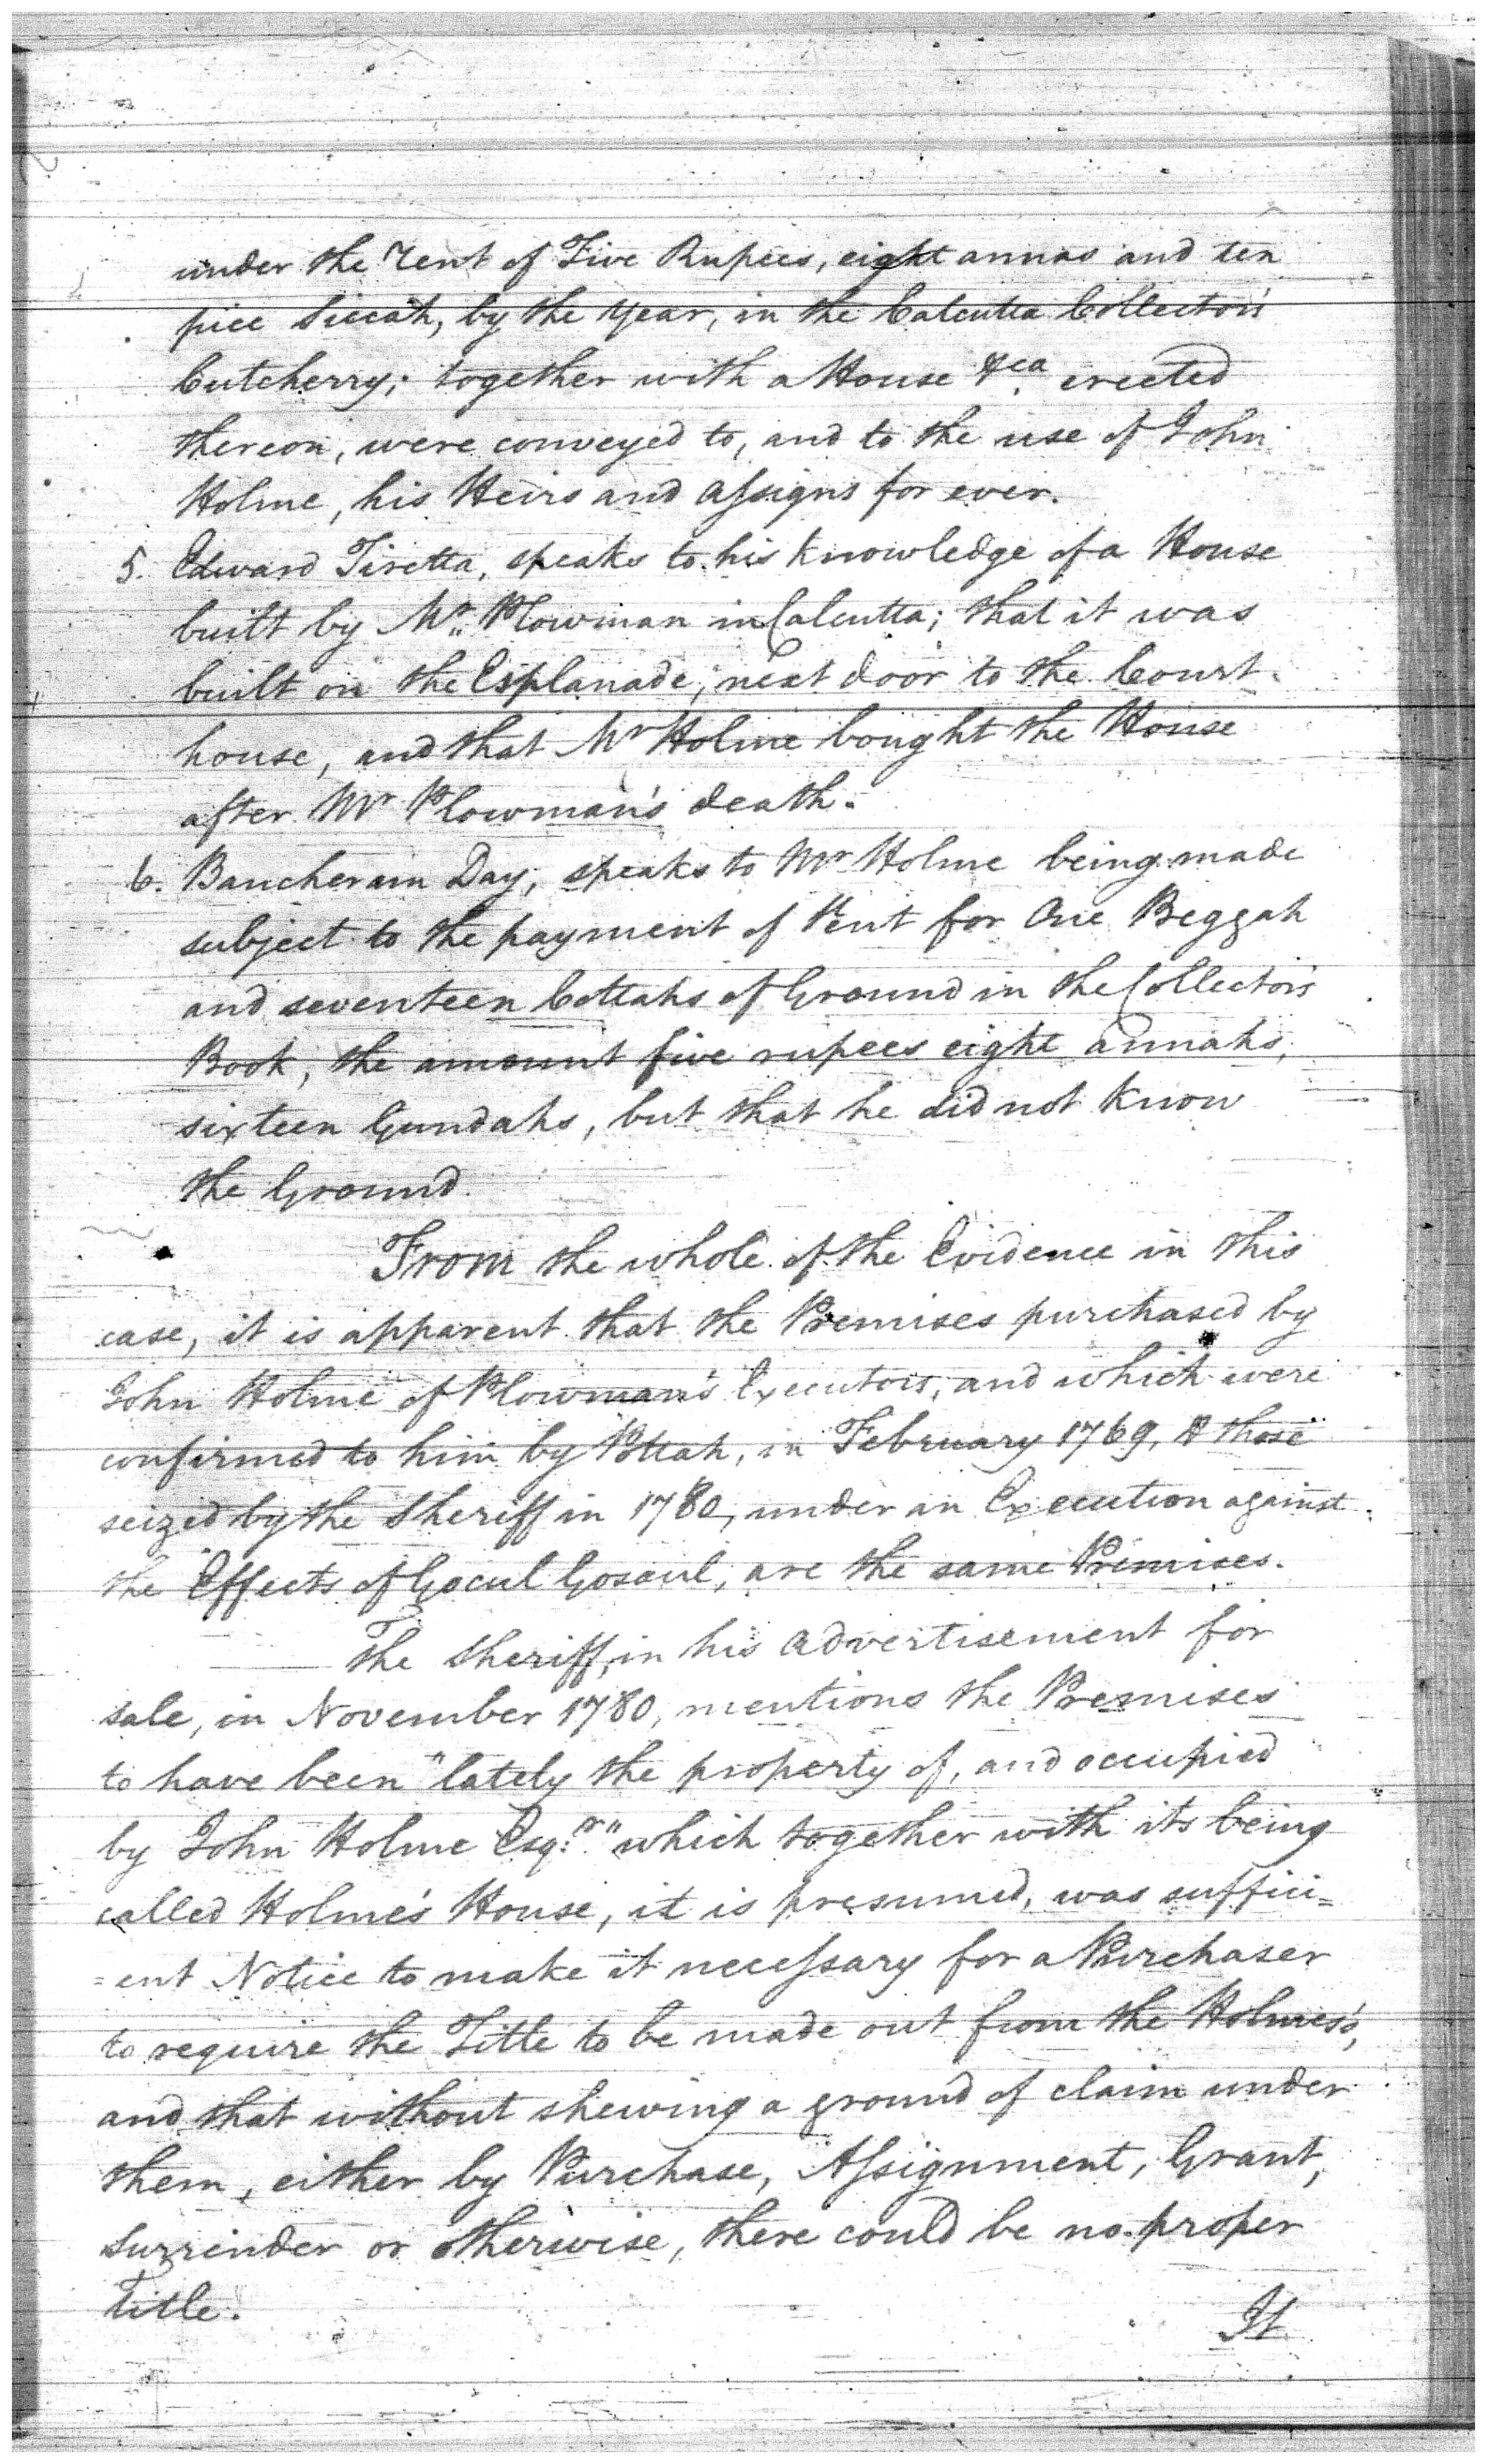 under the rent of Five Rupees, eight annas and ten
pice Siccah, by the Year, in the Calcutta Collector's
Cutcherry; together with a House &ca. erected
thereon, were conveyed to, and to the use of John
Holme, his Heirs and Assigns for ever.
5. Edward Tiretta, speaks to his knowledge of a House
built by Mr. Plowman in Calcutta; that it was
built on the Esplanade, next door to the Court
house, and that Mr Holme bought the House
after Mr Plowman's death.
6. Bancheram Day, speaks to Mr Holme being made
subject to the payment of Rent for One Beggah
and seventeen Cottahs of Ground in the Collector's
Book, the amount five rupees eight annahs,
sixteen Gundahs, but that he did not know
the Ground.
From the whole of the Evidence in this
case, it is apparent that the Premises purchased by
John Holme of Plowman's Executors, and which were
confirmed to him by Pottah, in February 1769, & those
seized by the Sheriff in 1780, under an Execution against
the Effects of Gocul Gosaul, are the same Premises.
The Sheriff, in his advertisement for
sale, in November 1780, mentions the Premises
to have been "lately the property of, and occupied
by John Holme Esq:r" which together with its being
called Holme's House, it is presumed, was suffici=
=ent Notice to make it necessary for a Purchaser
to require the Title to be made out from the Holmes's,
and that without shewing a ground of claim under
them, either by Purchase, Assignment, Grant,
Surrender or otherwise, there could be no proper
Title.
It